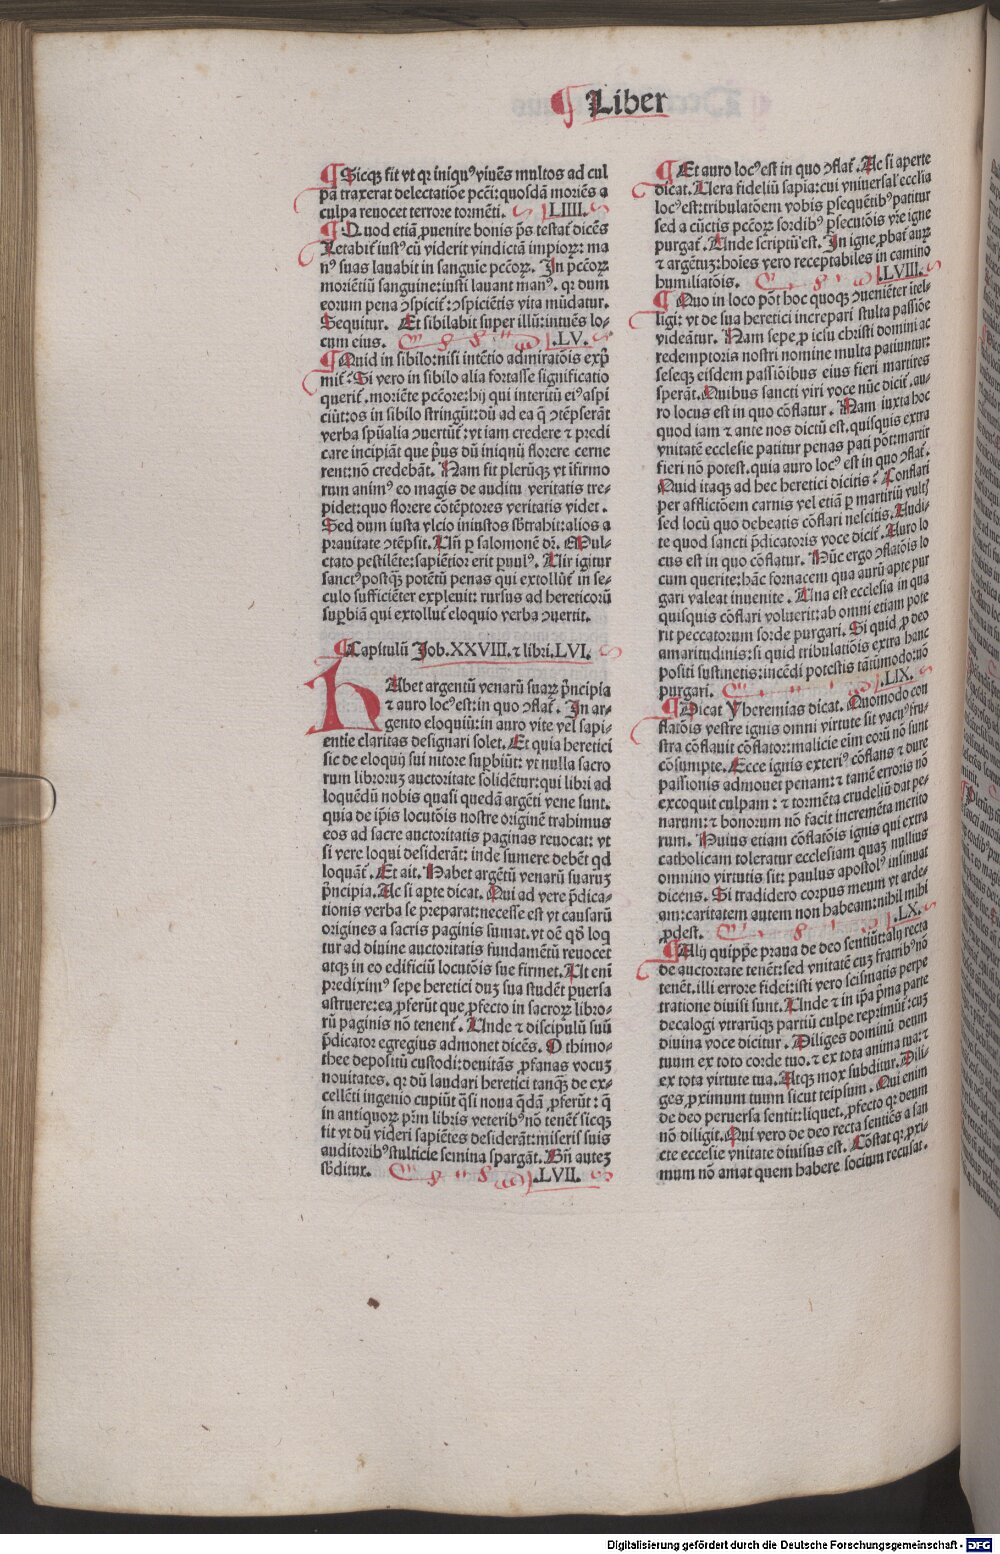 ¶ Liber
¶ Sicqꝫ fit vt qꝛ iniquꝰ viuẽs multos ad cul
pa traxerat delectatiõe pcc̃i: quosdã moriẽs a
culpa reuocet terrore tormẽti. LIIII.
¶ Quod etiã ꝓuenire bonis p̃s testat᷑ dicẽs
Letabit᷑ iustꝰ cũ viderit vindictã impioꝝ: ma
nꝰ suas lauabit in sanguie pcc̃oꝝ. In pcc̃oꝝ
moriẽtiũ sanguine: iusti lauant manꝰ. qꝛ dum
eorum pena ꝯspicit᷑: ꝯspiciẽtis vita mũdatur.
Sequitur. Et sibilabit super illũ: intuẽs lo-
cum eius. LV.
¶ Quid in sibilo: nisi intẽtio admiratõis exp̃
mit᷑: Si vero in sibilo alia fortasse significatio
querit᷑. moriẽte pcc̃ore: hij qui interitũ eiꝰ aspi
ciũt: os in sibilo stringũt: dũ ad ea q̃ ꝯtẽpserãt
verba spũalia ꝯuertũt᷑: vt iam credere ⁊ predi
care incipiãt que p̃us dũ iniqnũ florere cerne
rent: nõ credebãt. Nam fit plerũqꝫ vt ĩfirmo
rum animꝰ eo magis de auditu veritatis tre-
pidet: quo florere cõtẽptores veritatis videt.
Sed dum iusta vlcio iniustos sb̃trahit: alios a
prauitate ꝯtẽpsit. Uñ ꝑ salomonẽ dr̃. Mul-
ctato pestilẽte: sapiẽtior erit ꝑuulꝰ. Uir igitur
sanctꝰ postq̃ꝫ potẽtũ penas qui extollũt᷑ in se-
culo sufficiẽter expleuit: rursus ad hereticorũ
suꝑbiã qui extollũt᷑ eloquio verba ꝯuertit.
¶ Capitulũ Job. XXVIII. ⁊ libri. LVI.
HAbet argentũ venarũ suaꝝ p̃ncipia
⁊ auro locꝰ est: in quo ꝯflat᷑. In ar-
gento eloquiũ: in auro vite vel sapi-
entie claritas designari solet. Et quia heretici
sic de eloquij sui nitore suꝑbiũt: vt nulla sacro
rum libroruꝫ auctoritate solidẽtur: qui libri ad
loquẽdũ nobis quasi quedã argẽti vene sunt.
quia de ip̃is locutõis nostre originẽ trahimus
eos ad sacre auctoritatis paginas reuocat: vt
si vere loqui desiderãt: inde sumere debẽt qd
loquãt᷑. Et ait. Habet argẽtũ venarũ suaruꝫ
p̃ncipia. Ac si aꝑte dicat. Qui ad vere p̃dica-
tionis verba se preparat: necesse est vt causarũ
origines a sacris paginis sumat. vt oẽ qd̃ loq̃
tur ad diuine auctoritatis fundamẽtũ reuocet
atqꝫ in eo edificiũ locutõis sue firmet. Ut eni᷑
prediximꝰ sepe heretici duꝫ sua studẽt ꝑuersa
astruere: ea ꝓferũt que ꝓfecto in sacroꝝ libro-
rũ paginis nõ tenent᷑. Unde ⁊ discipulũ suũ
p̃dicator egregius admonet dicẽs. O thimo-
thee depositũ custodi: deuitãs ꝓfanas vocuꝫ
nouitates. qꝛ dũ laudari heretici tanq̃ꝫ de ex-
cellẽti ingenio cupiũt q̃si noua q̃dã ꝓferũt: q̃
in antiquoꝝ pr̃m libris veteribꝰ nõ tenẽt᷑ sicqꝫ
fit vt dũ videri sapiẽtes desiderãt: miseris suis
auditoribꝰ stulticie semina spargãt. Bñ auteꝫ
sb̃ditur. LVII.
¶ Et auro locꝰ est in quo ꝯflat᷑. Ac si aperte
dicat. Uera fideliũ sapia: cui vniuersalˀ ecclia
locꝰ est: tribulatõem vobis ꝑsequẽtibꝰ patitur
sed a cũctis pcc̃oꝝ sordibꝰ ꝑsecutõis vr̃e igne
purgat᷑. Unde scriptũ est. In igne ꝓbat᷑ auꝝ
⁊ argẽtuꝫ: hoies vero receptabiles in camino
humiliatõis. LVIII.
¶ Quo in loco põt hoc quoqꝫ ꝯueniẽter ĩtel-
ligi: vt de sua heretici increpari stulta passiõe
videãtur. Nam sepe ꝓ iesu christi domini ac
redemptoris nostri nomine multa patiuntur:
seseqꝫ eisdem passiõibus eius fieri martires
sperãt. Quibus sancti viri voce nũc dicit᷑. au-
ro locus est in quo cõflatur. Nam iuxta hoc
quod iam ⁊ ante nos dictũ est. quisquis extra
vnitatẽ ecclesie patitur penas pati põt: martir
fieri nõ potest. quia auro locꝰ est in quo ꝯflat᷑.
Quid itaqꝫ ad hec heretici dicitis: Conflari
per afflictõem carnis vel etiã ꝑ martiriũ vultꝭ
sed locũ quo debeatis cõflari nescitis. Audi-
te quod sancti p̃dicatoris voce dicit᷑. Auro lo
cus est in quo cõflatur. Hũc ergo ꝯflatõis lo
cum querite: hãc fornacem qua aurũ apte pur
gari valeat inuenite. Una est ecclesia in qua
quisquis cõflari voluerit: ab omni etiam pote
rit peccatorum sorde purgari. Si quid ꝓ deo
amaritudinis: si quid tribulatiõis extra hanc
positi sustinetis: incẽdi potestis tãtũmodo: nõ
purgari. LIX.
¶ Dicat Yheremias dicat. Quomodo con
flatõis vestre ignis omni virtute sit vacuꝰ fru-
stra cõflauit cõflator: malicie eim eorũ nõ sunt
cõsumpte. Ecce ignis exteriꝰ cõflans ⁊ dure
passionis admouet penam: ⁊ tamẽ erroris nõ
excoquit culpam: ⁊ tormẽta crudeliũ dat pe-
narum: ⁊ bonorum nõ facit incremẽta merito
rum. Huius etiam cõflatõis ignis qui extra
catholicam toleratur ecclesiam quaꝫ nullius
omnino virtutis sit: paulus apostolˀ insinuat
dicens. Si tradidero corpus meum vt arde-
am: caritatem autem non habeam: nihil mihi
ꝓdest. LX.
¶ Alij quippe praua de deo sentiũt: alij recta
de auctortate tenẽt: sed vnitatẽ cuꝫ fratribꝰ nõ
tenẽt. illi errore fidei: isti vero scismatis perpe
tratione diuisi sunt. Unde ⁊ in ip̃a p̃ma parte
decalogi vtrarũqꝫ partiũ culpe reprimũt᷑: cuꝫ
diuina voce dicitur. Diliges dominũ deum
tuum ex toto corde tuo. ⁊ ex tota anima tua: ⁊
ex tota virtute tua. Atqꝫ mox subditur. Dili-
ges ꝓximum tuum sicut teipsum. Qui enim
de deo peruersa sentit: liquet. ꝓfecto qꝛ deum
nõ diligit. Qui vero de deo recta sentiẽs a san
cte eccesie vnitate diuisus est. Cõstat qꝛ ꝓxi-
mum nõ amat quem habere socium recusat.
Digitalisierung gefördert durch die Deutsche Forschungsgemeinschaft - DFG